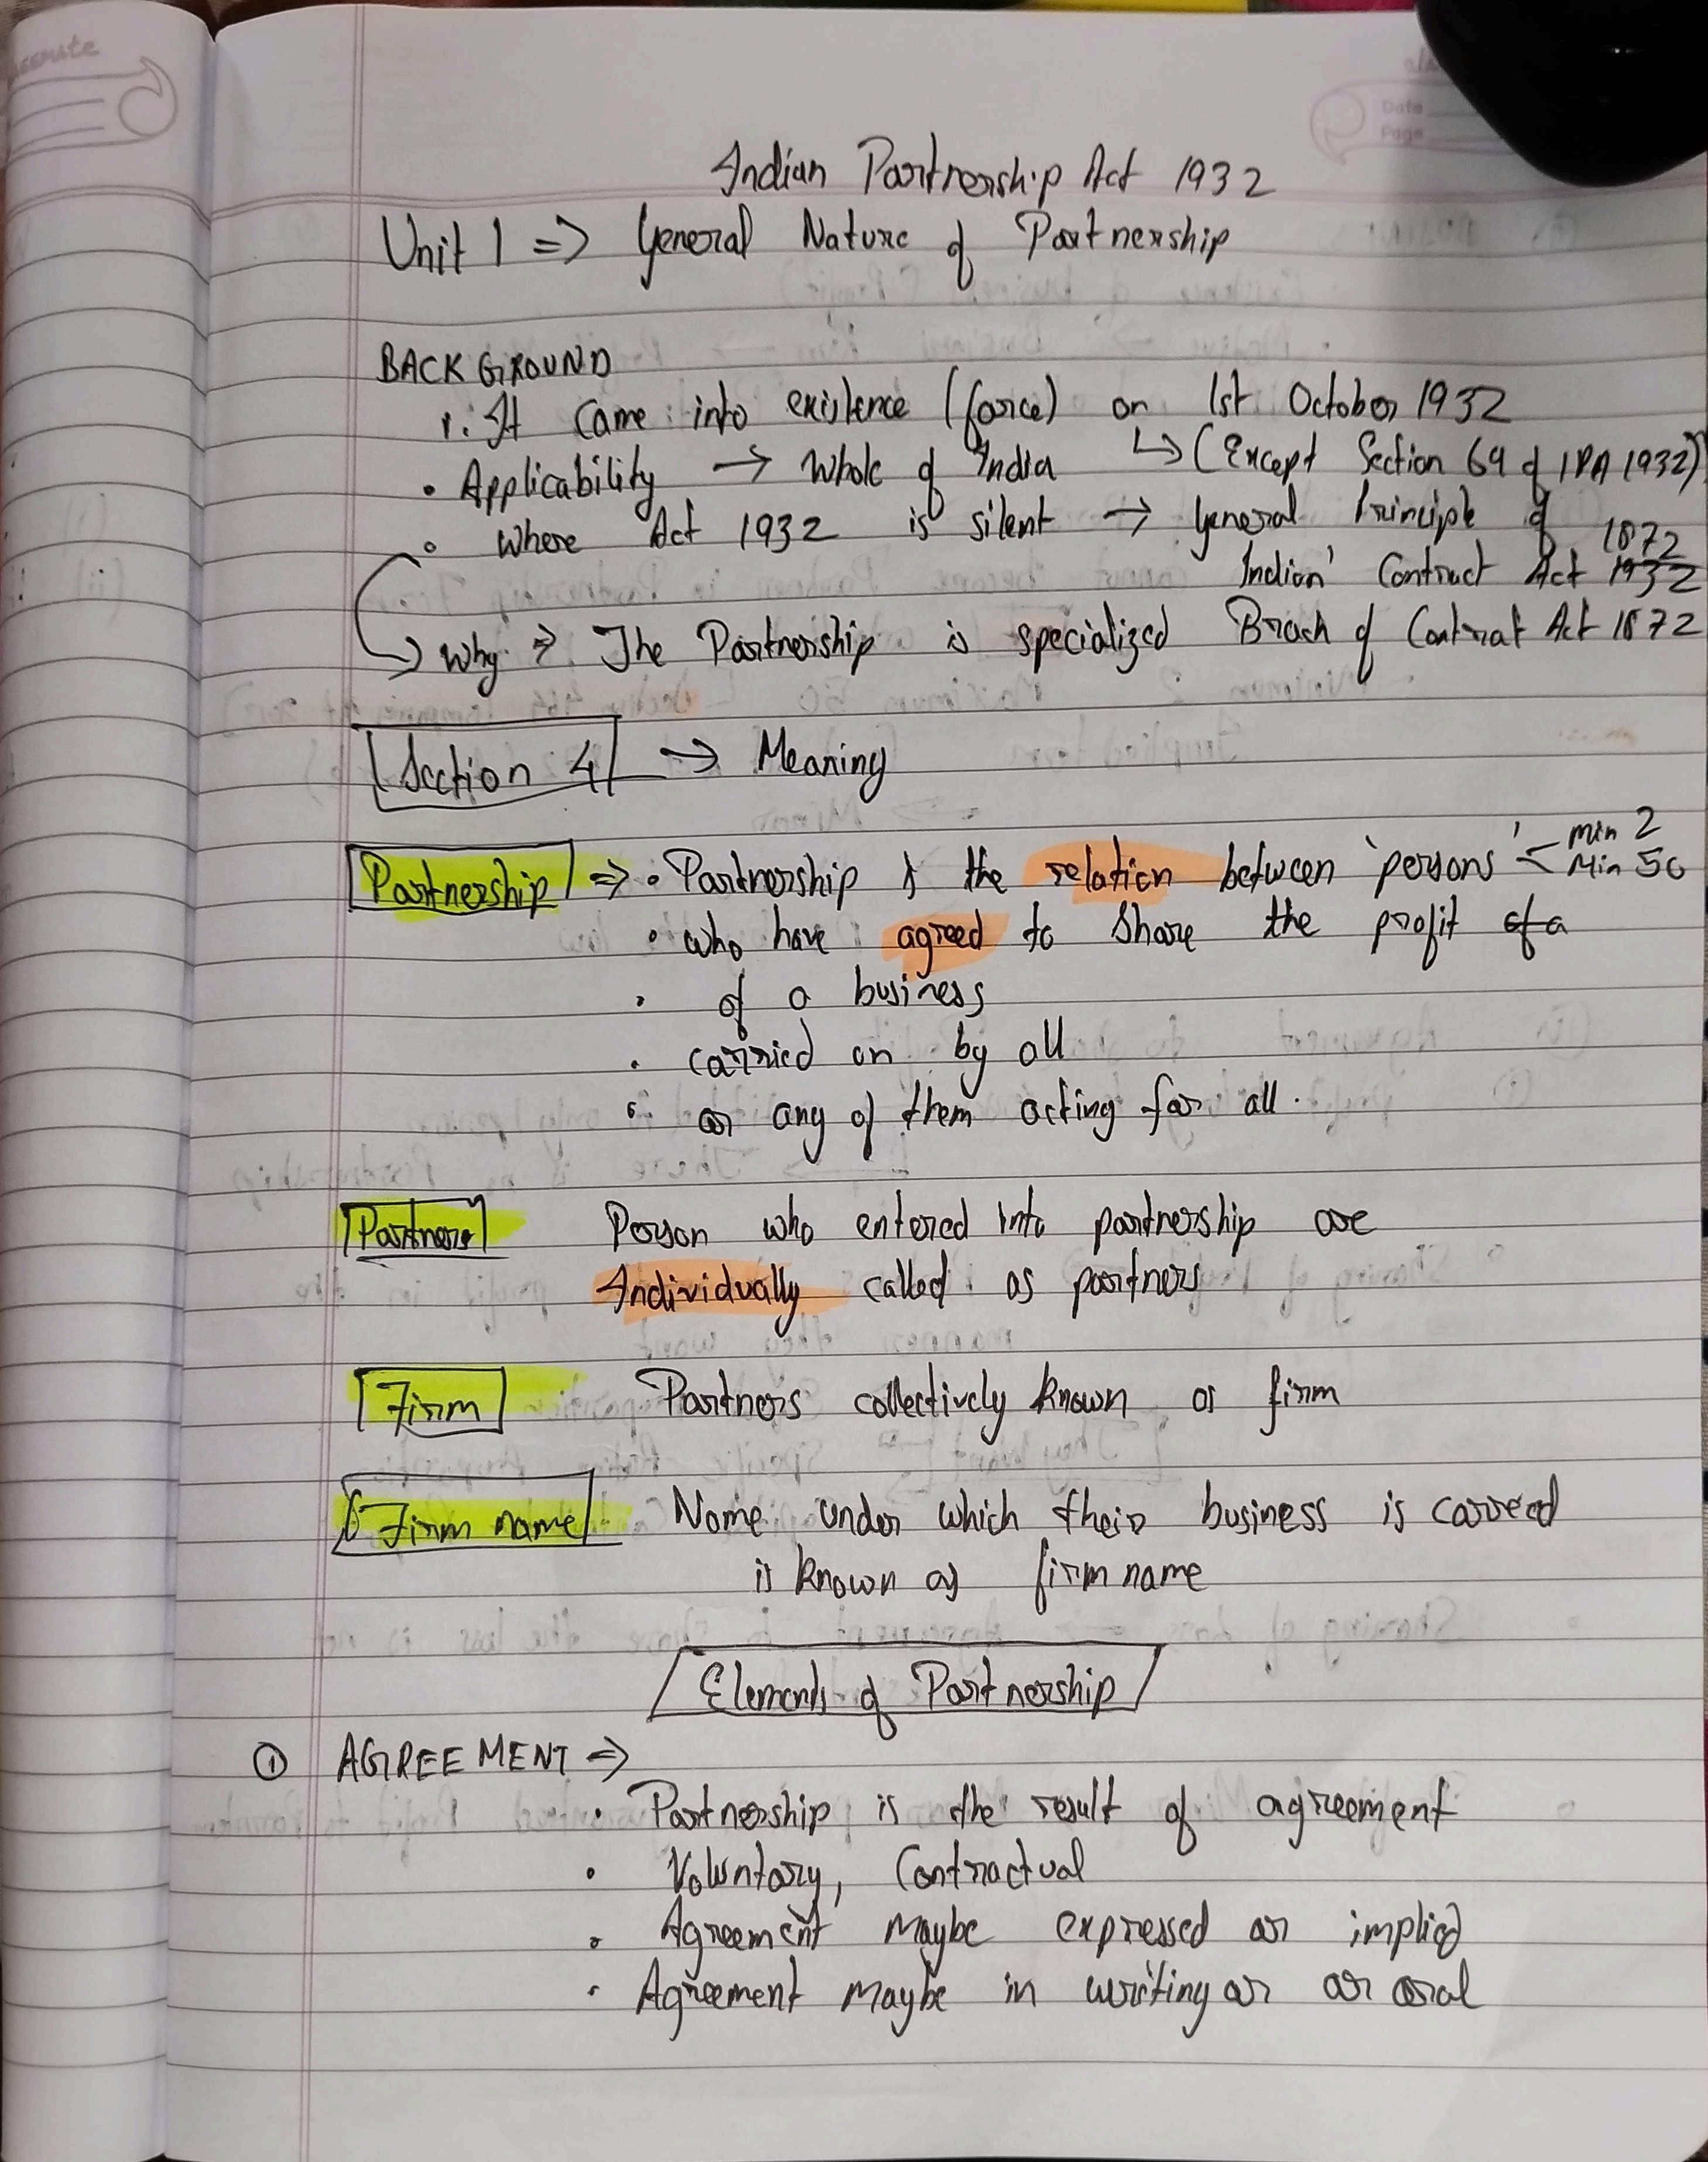 classmate
Date
Page
Indian Partnership Act 1932
Unit 1 => General Nature of Partnership
BACKGROUND
1. It came into existence (force) on 1st October 1932
• Applicability → Whole of India ↳ (Except Section 69 of IPA 1932)
• Where Act 1932 is silent → General Principle of
1872
Indian Contract Act 1932
↳ Why ⇒ The Partnership is specialized Brach of Contract Act 1872
Section 4 → Meaning
Partnership => • Partnership is the relation between 'persons' < min 2
Min 50
• who have agreed to share the profit of a
• of a business
• carried on by all
• or any of them acting for all.
Partners Person who entered into partnership are
Individually called as partners
Firm Partners collectively known as firm
Firm name Name under which their business is carreed
is known as firm name
Elements of Partnership
① AGREEMENT =>
• Partnership is the result of agreement
• Voluntary, Contractual
• Agreement Maybe expressed or implied
• Agreement maybe in writing or or oral